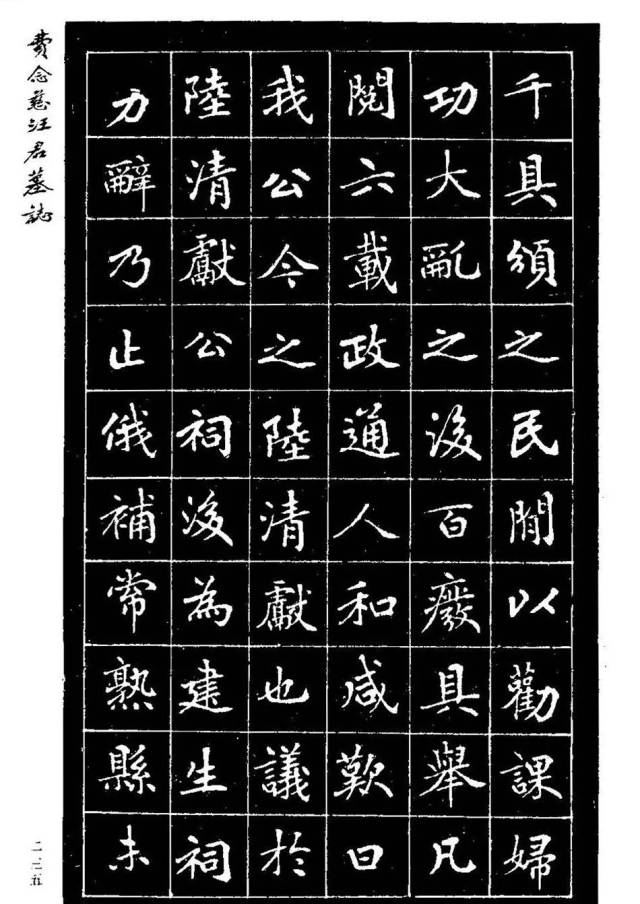 千具頒之民間以勸課婦
功大亂之後百廢具舉凡
閱六載政通人和咸歎曰
我公今之陸清獻也議於
陸清獻公祠後為建生祠
力辭乃止俄補常熟縣未
費念慈汪君墓誌
二二五